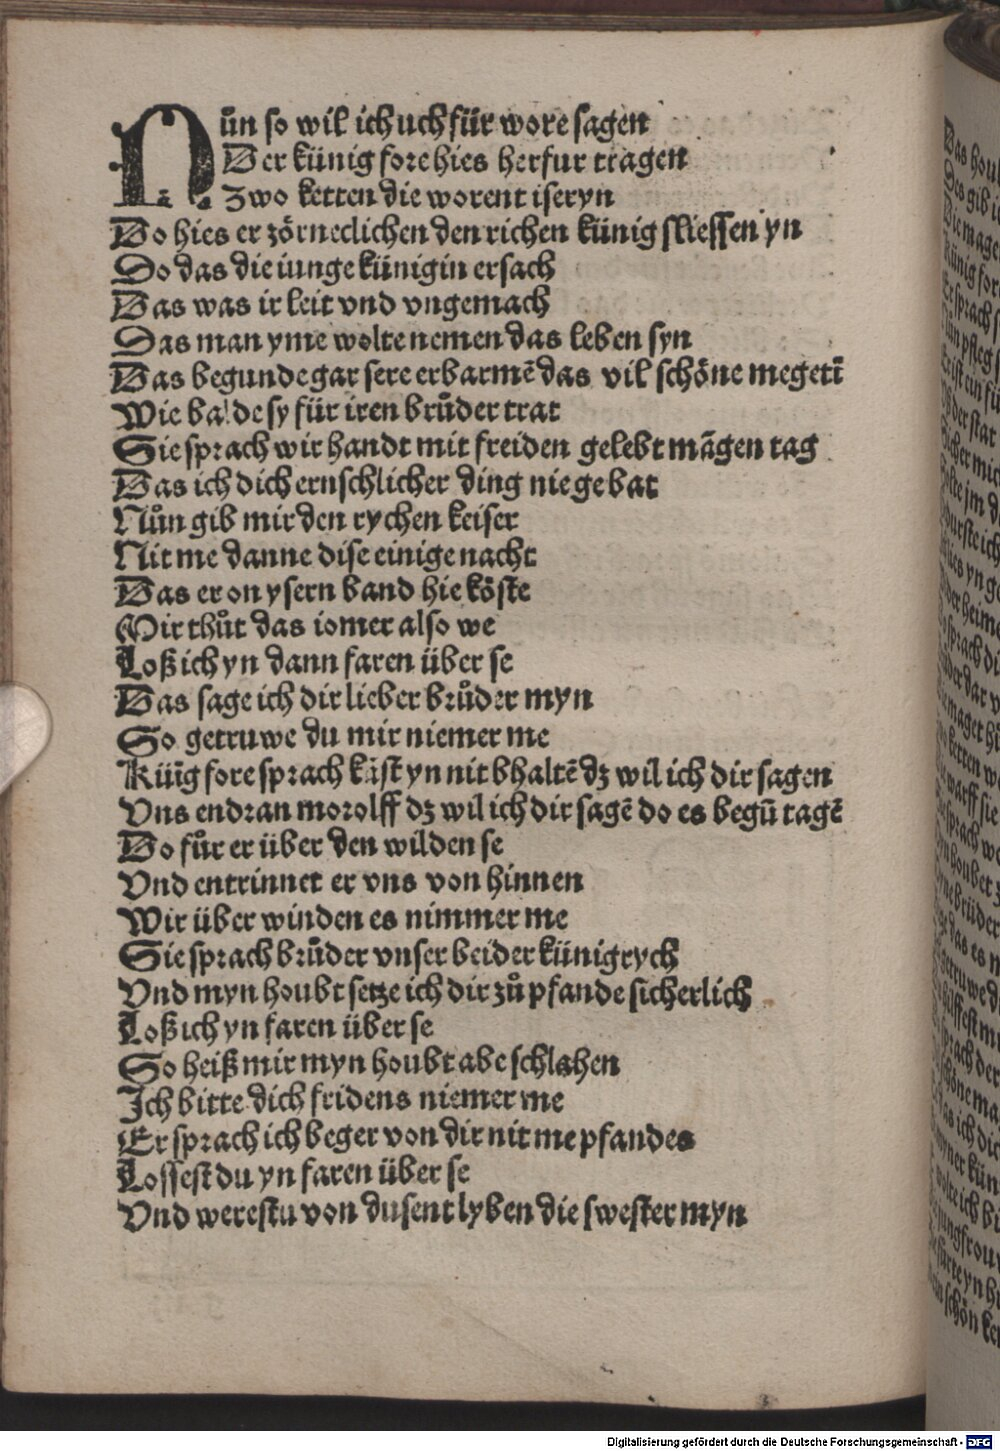 Nůn so wil ich uch für wore sagen
Der künig fore hies herfur tragen
Zwo ketten die worent iseryn
Do hies er zörneclichen den richen künig sliessen yn
Do das die iunge künigin ersach
Das was ir leit vnd vngemach
Das man yme wolte nemen das leben syn
Das begunde gar sere erbarmē das vil schöne megetī
Wie balde sy für iren brůder trat
Sie sprach wir handt mit freiden gelebt māgen tag
Das ich dich ernschlicher ding nie gebat
Nůn gib mir den rychen keiser
Nit me danne dise einige nacht
Das er on ysern band hie köste
Mir thůt das iomer also we
Loß ich yn dann faren über se
Das sage ich dir lieber brůder myn
So getruwe du mir niemer me
Küīg fore sprach kāst yn nit bhaltē dz wil ich dir sagen
Vns endran morolff dz wil ich dir sagē do es begū tagē
Do fůr er über den wilden se
Vnd entrinnet er vns von hinnen
Wir über winden es nimmer me
Sie sprach brůder vnser beider künigrych
Vnd myn houbt setze ich dir zů pfande sicherlich
Loß ich yn faren über se
So heiß mir myn houbt abe schlahen
Ich bitte dich fridens niemer me
Er sprach ich beger von dir nit me pfandes
Lossest du yn faren über se
Vnd werestu von dusent lyben die swester myn
Digitalisierung gefördert durch die Deutsche Forschungsgemeinschaft - DFG